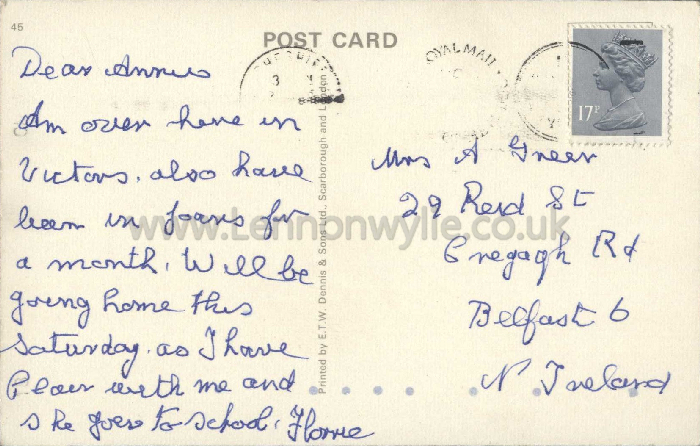 45
POST CARD
Dear Annie
Am over here in
Victors. also have
been in Joans for
a month. Will be
going home this
Saturday. as I have
Clair with me and
she goes to school. Florrie
Printed by E.T.W. Dennis & Sons Ltd., Scarborough and London
ROYAL MAIL
17P
Mrs A Greer
29 Reid St
Cregagh Rd
Belfast 6
N Ireland
www.Lennonwylie.co.uk